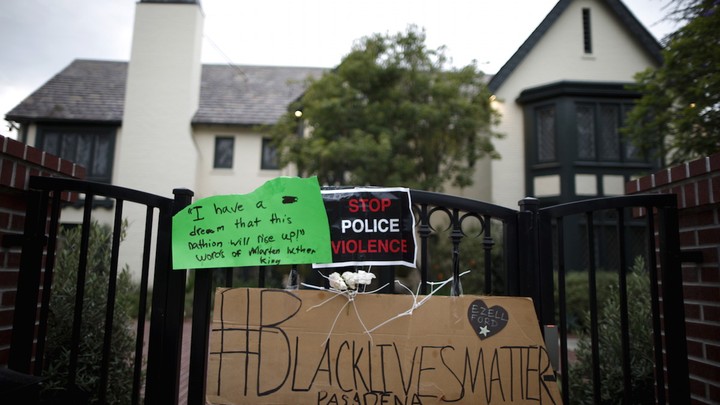 "I have a
dream that this
nathion will rise up!"
words of Marten luther
king
STOP
POLICE
VIOLENCE
EZELL
FORD
#BLACKLIVESMATTER
PASADENA